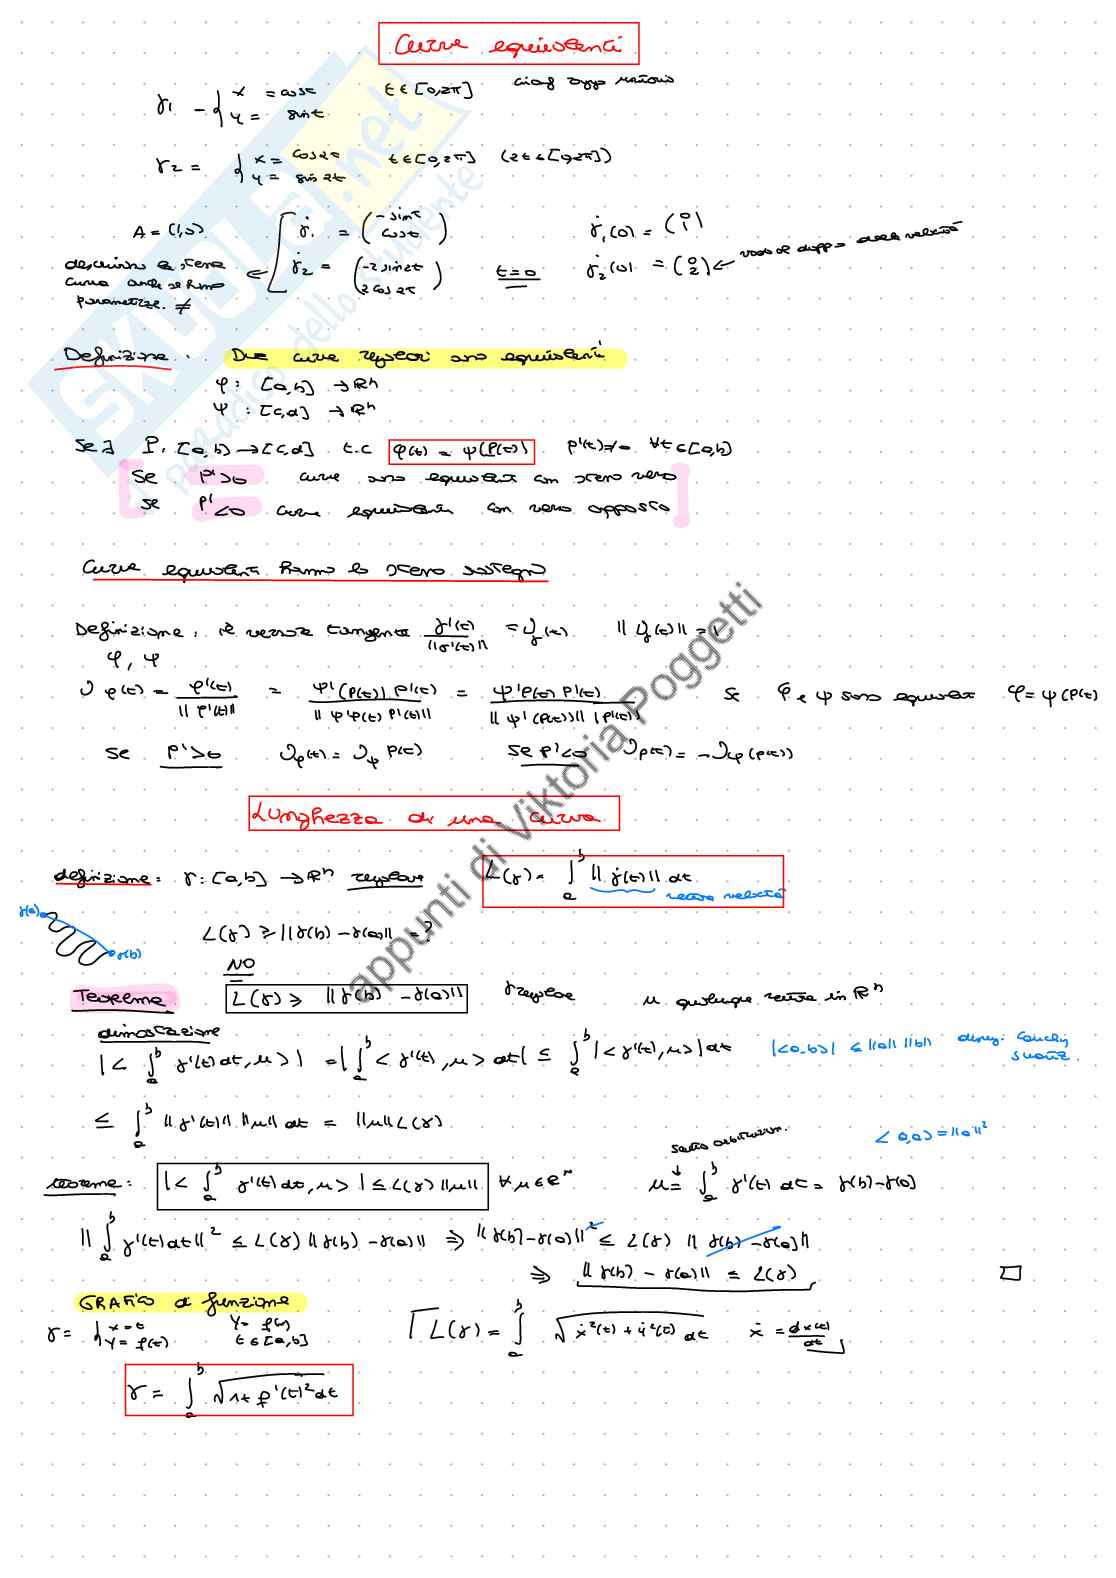 Curve equivalenti
γ1 = { x = cos t   t ∈ [0,2π]
y = sin t
γ2 = { x = cos 2t   t ∈ [0,2π]   (2t ∈ [0,2π])
y = sin 2t
A = (1,0)   γ̇1 = (-sin t, cos t)   γ̇1(0) = (0, 1)
γ̇2 = (-2 sin 2t, 2 cos 2t)   t=0   γ̇2(0) = (0, 2) ←
la stessa
curva anche se hanno
parametrizz. ≠
Definizione. Due curve regolari sono equivalenti
φ: [a,b] → Rⁿ
ψ: [c,d] → Rⁿ
Se ∃ P: [a,b] → [c,d] t.c φ(t) = ψ(P(t)) P'(t) ≠ 0 ∀t ∈ [a,b]
Se P' > 0 curve sono equivalenti con stesso verso
Se P' < 0 curve equivalenti con verso opposto
Curve equivalenti hanno lo stesso sostegno
Definizione: il versore tangente γ'(t)/||γ'(t)|| = 𝒯γ(t)   ||𝒯γ(t)|| = 1
φ, ψ
𝒯φ(t) = φ'(t)/||φ'(t)|| = ψ'(P(t)) P'(t)/||ψ'P(t) P'(t)|| = ψ'P(t) P'(t)/||ψ'(P(t))|| |P'(t)|   Se φ e ψ sono equivalenti φ = ψ(P(t)
Se P' > 0   𝒯φ(t) = 𝒯ψ P(t)   Se P' < 0   𝒯φ(t) = -𝒯ψ(P(t))
Lunghezza di una curva
definizione: γ: [a,b] → Rⁿ regolare   L(γ) = ∫ₐᵇ ||γ̇(t)|| dt
vettore velocità
γ(a)
γ(b)
L(γ) ≥ ||γ(b) - γ(a)|| = ?
NO
Teorema   L(γ) ≥ ||γ(b) - γ(a)||   γ regolare   u qualunque vettore in Rⁿ
dimostrazione
|< ∫ₐᵇ γ'(t) dt, u >| = |∫ₐᵇ < γ'(t), u > dt| ≤ ∫ₐᵇ |< γ'(t), u >| dt   |<a,b>| ≤ ||a|| ||b|| disug. Cauchy
Swartz.
≤ ∫ₐᵇ ||γ'(t)|| ||u|| dt = ||u|| L(γ)
<a,a> = ||a||²
teorema: |< ∫ₐᵇ γ'(t) dt, u >| ≤ L(γ) ||u|| ∀u ∈ Rⁿ   u = ∫ₐᵇ γ'(t) dt = γ(b) - γ(a)
||∫ₐᵇ γ'(t) dt||² ≤ L(γ) ||γ(b) - γ(a)|| ⇒ ||γ(b) - γ(a)||² ≤ L(γ) ||γ(b) - γ(a)||
⇒ ||γ(b) - γ(a)|| ≤ L(γ)   □
GRAFICO di funzione
γ = { x = t   y = f(x)   L(γ) = ∫ₐᵇ √(ẋ²(t) + ẏ²(t)) dt   ẋ = dx(t)/dt
y = f(t)   t ∈ [a,b]
γ = ∫ₐᵇ √(1 + f'(t)²) dt
SKUOLA.net
il paradiso dello studente
appunti di Viktoria Poggetti